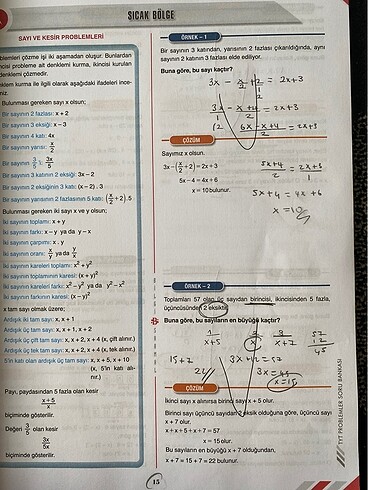 SICAK BÖLGE
SAYI VE KESİR PROBLEMLERİ
blemleri çözme işi iki aşamadan oluşur. Bunlardan
incisi probleme ait denklemi kurma, ikincisi kurulan
denklemi çözmedir.
nklem kurma ile ilgili olarak aşağıdaki ifadeleri ince-
niz.
Bulunması gereken sayı x olsun;
Bir sayının 2 fazlası: x + 2
Bir sayının 3 eksiği: x – 3
Bir sayının 4 katı: 4x
Bir sayının yarısı: x/2
Bir sayının 3/5 i: 3x/5
Bir sayının 3 katının 2 eksiği: 3x – 2
Bir sayının 2 eksiğinin 3 katı: (x – 2) . 3
Bir sayının yarısının 2 fazlasının 5 katı: (x/2 + 2) .5
Bulunması gereken iki sayı x ve y olsun;
İki sayının toplamı: x + y
İki sayının farkı: x – y ya da y – x
İki sayının çarpımı: x . y
İki sayının oranı: x/y ya da y/x
İki sayının kareleri toplamı: x² + y²
İki sayının toplamının karesi: (x + y)²
İki sayının kareleri farkı: x² – y² ya da y² – x²
İki sayının farkının karesi: (x – y)²
x tam sayı olmak üzere;
Ardışık iki tam sayı: x, x + 1
Ardışık üç tam sayı: x, x + 1, x + 2
Ardışık üç çift tam sayı: x, x + 2, x + 4 (x, çift alınır.)
Ardışık üç tek tam sayı: x, x + 2, x + 4 (x, tek alınır.)
5'in katı olan ardışık üç tam sayı: x, x + 5, x + 10
(x, 5'in katı alı-
nır.)
Payı, paydasından 5 fazla olan kesir
(x + 5)/x
biçiminde gösterilir.
Değeri 3/5 olan kesir
3x/5x
biçiminde gösterilir.
ÖRNEK – 1
Bir sayının 3 katından, yarısının 2 fazlası çıkarıldığında, aynı
sayının 2 katının 3 fazlası elde ediliyor.
Buna göre, bu sayı kaçtır?
3x – x/2 + 2/1 = 2x+3
3x/1 – (x+4)/2 = 2x+3
(6x – x+4)/2 = 2x+3
ÇÖZÜM
Sayımız x olsun.
3x – (x/2 + 2) = 2x + 3
5x – 4 = 4x + 6
x = 10 bulunur.
(5x+4)/2 = (2x+3)/1
5x+4 = 4x+6
x = 10
ÖRNEK – 2
Toplamları 57 olan üç sayıdan birincisi, ikincisinden 5 fazla,
üçüncüsünden 2 eksiktir.
Buna göre, bu sayıların en büyüğü kaçtır?
1 2 3
x+5 x x+7
57
12
45
15+7
22
3x+12 = 57
3x = 45
x = 15
ÇÖZÜM
İkinci sayı x alınırsa birinci sayı x + 5 olur.
Birinci sayı üçüncü sayıdan 2 eksik olduğuna göre, üçüncü sayı
x + 7 olur.
x + x + 5 + x + 7 = 57
x = 15 olur.
Bu sayıların en büyüğü x + 7 olduğundan,
x + 7 = 15 + 7 = 22 bulunur.
TYT PROBLEMLER SORU BANKASI
15